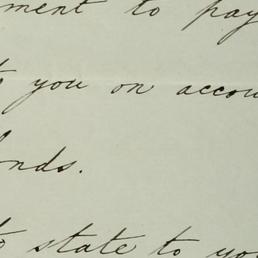 ment to pay
to you on accou
onds.
to state to yo